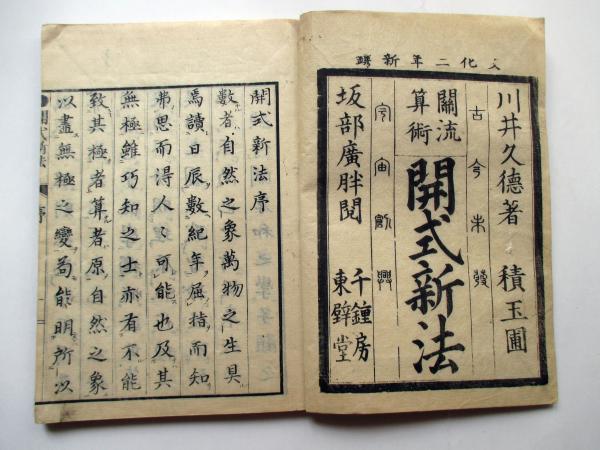 文化二年新鐫
川井久德著
積玉圃
古今未發
關流
算術
開式新法
宇宙創興
坂部廣胖閱
千鍾房
東壁堂
開式新法序
數者自然之象萬物之生具
焉讀日辰數紀年屈指而知
弗思而得人々可能也及其
無極雖巧知之士亦有不能
致其極者算者原自然之象
以盡無極之變苟能明所以
開式新法
序